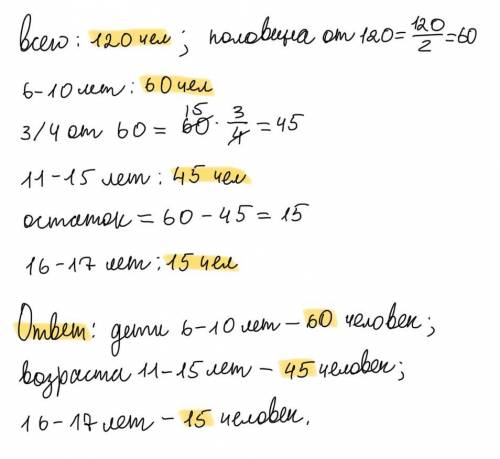 всего: 120 чел; половина от 120 = 120/2 = 60
6-10 лет: 60 чел
3/4 от 60 = 60 15 · 3/4 = 45
11-15 лет: 45 чел
остаток = 60 - 45 = 15
16-17 лет: 15 чел
Ответ: дети 6-10 лет - 60 человек;
возраста 11-15 лет - 45 человек;
16-17 лет - 15 человек.